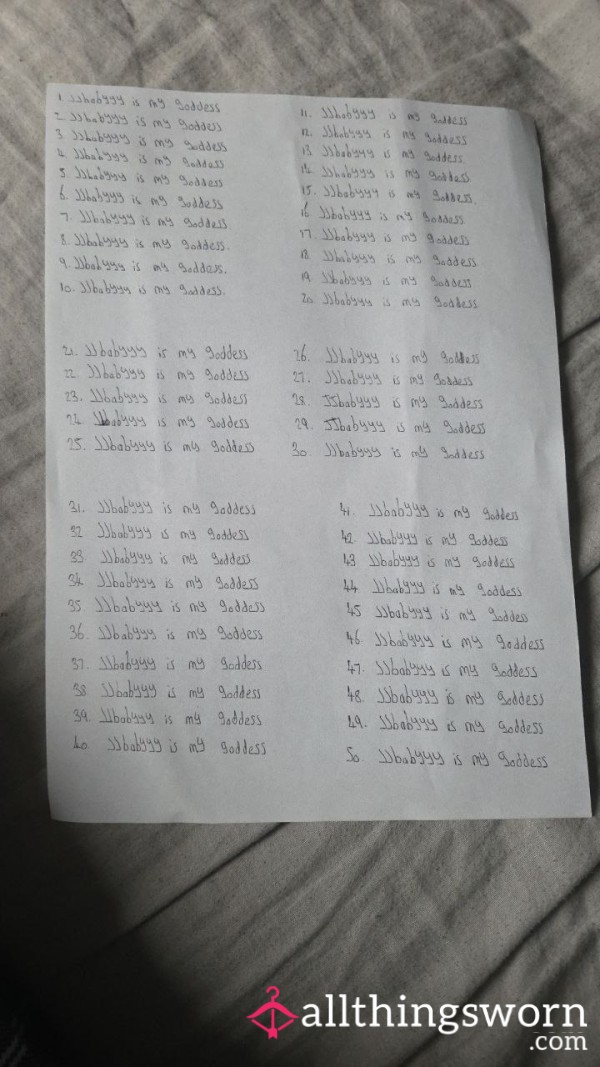 1. JJbabyyy is my goddess
2. JJbabyyy is my goddess
3. JJbabyyy is my goddess
4. JJbabyyy is my goddess
5. JJbabyyy is my goddess
6. JJbabyyy is my goddess
7. JJbabyyy is my goddess
8. JJbabyyy is my goddess.
9. JJbabyyy is my goddess.
10. JJbabyyy is my goddess.
11. JJbabyyy is my goddess
12. JJbabyyy is my goddess
13. JJbabyyy is my goddess.
14. JJbabyyy is my goddess
15. JJbabyyy is my goddess.
16. JJbabyyy is my goddess
17. JJbabyyy is my goddess
18. JJbabyyy is my goddess
19. JJbabyyy is my goddess
20. JJbabyyy is my goddess
21. JJbabyyy is my goddess
22. JJbabyyy is my goddess
23. JJbabyyy is my goddess
24. JJbabyyy is my goddess
25. JJbabyyy is my goddess
26. JJbabyyy is my goddess
27. JJbabyyy is my goddess
28. JJbabyyy is my goddess
29. JJbabyyy is my goddess
30. JJbabyyy is my goddess
31. JJbabyyy is my goddess
32 JJbabyyy is my goddess
33. JJbabyyy is my goddess
34. JJbabyyy is my goddess
35. JJbabyyy is my goddess
36. JJbabyyy is my goddess
37. JJbabyyy is my goddess
38. JJbabyyy is my goddess
39. JJbabyyy is my goddess
40 JJbabyyy is my goddess
41. JJbabyyy is my goddess
42. JJbabyyy is my goddess
43 JJbabyyy is my goddess
44 JJbabyyy is my goddess
45 JJbabyyy is my goddess
46. JJbabyyy is my goddess
47. JJbabyyy is my goddess
48. JJbabyyy is my goddess
49. JJbabyyy is my goddess
50. JJbabyyy is my goddess
allthingsworn
.com